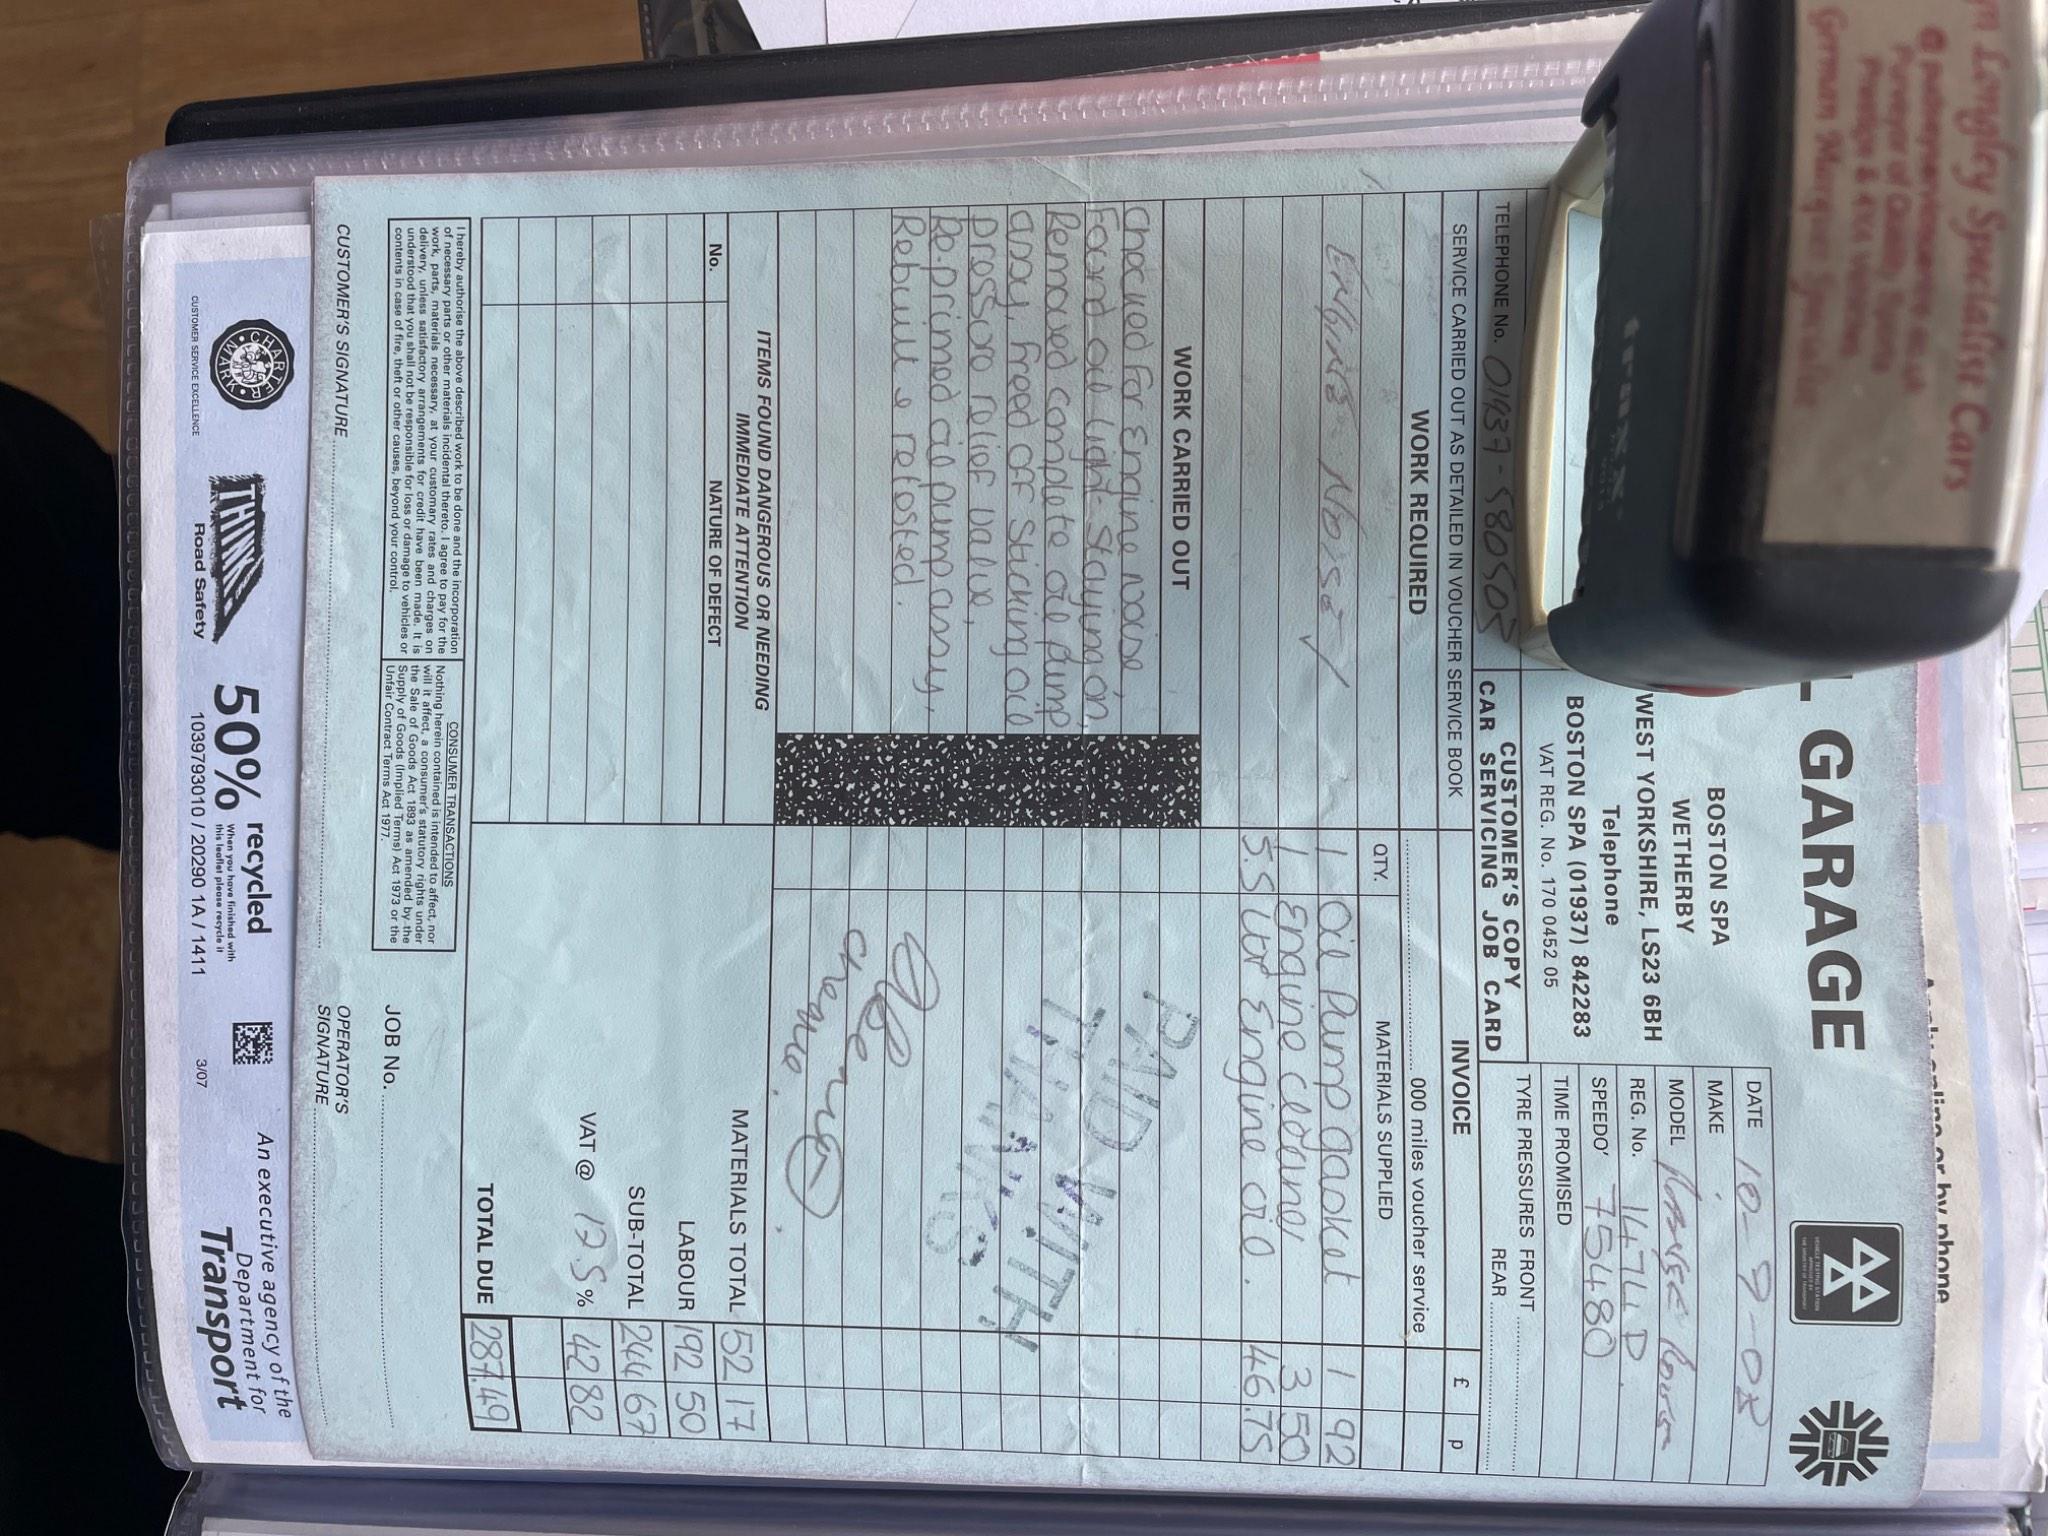 Longley Specialist Cars
Purveyor of Quality
Prestige & 4X4 Vehicles
German Marque Specialist
traxx
GARAGE
BOSTON SPA
WETHERBY
WEST YORKSHIRE, LS23 6BH
Telephone
BOSTON SPA (01937) 842283
VAT REG. No. 170 0452 05
CUSTOMER'S COPY
CAR SERVICING JOB CARD
TELEPHONE No. 01937-580505
DATE 10-9-08
MAKE
MODEL
REG. No. 1474 D
SPEEDO' 75480
TIME PROMISED
TYRE PRESSURES FRONT
REAR
SERVICE CARRIED OUT AS DETAILED IN VOUCHER SERVICE BOOK
INVOICE
£ p
WORK REQUIRED
000 miles voucher service
QTY. MATERIALS SUPPLIED
Engine Noisey
1 Oil Pump gasket 1 92
1 Engine cleane 3 50
5.5 Ltr Engine oil. 46.75
WORK CARRIED OUT
Checked for Engine Noise,
Found oil light staying on,
Removed complete oil pump
assy, freed off sticking oil
pressure relief valve,
Re.primed oil pump assy,
Rebuilt & retested.
PAID WITH
THANKS
cheque
ITEMS FOUND DANGEROUS OR NEEDING
IMMEDIATE ATTENTION
No. NATURE OF DEFECT
MATERIALS TOTAL 52 17
LABOUR 192 50
SUB-TOTAL 244 67
VAT @ 17.5 % 42 82
TOTAL DUE 287.49
I hereby authorise the above described work to be done and the incorporation
of necessary parts or other materials incidental thereto. I agree to pay for the
work, parts, materials necessary, at your customary rates and charges on
delivery, unless satisfactory arrangements for credit have been made. It is
understood that you shall not be responsible for loss or damage to vehicles or
contents in case of fire, theft or other causes, beyond your control.
CONSUMER TRANSACTIONS
Nothing herein contained is intended to affect, nor
will it affect, a consumer's statutory rights under
the Sale of Goods Act 1893 as amended by the
Supply of Goods (Implied Terms) Act 1973 or the
Unfair Contract Terms Act 1977.
JOB No.
CUSTOMER'S SIGNATURE
OPERATOR'S
SIGNATURE
CHARTER MARK
CUSTOMER SERVICE EXCELLENCE
THINK!
Road Safety
50% recycled
When you have finished with
this leaflet please recycle it
1039793010 / 20290 1A / 1411
3/07
An executive agency of the
Department for
Transport